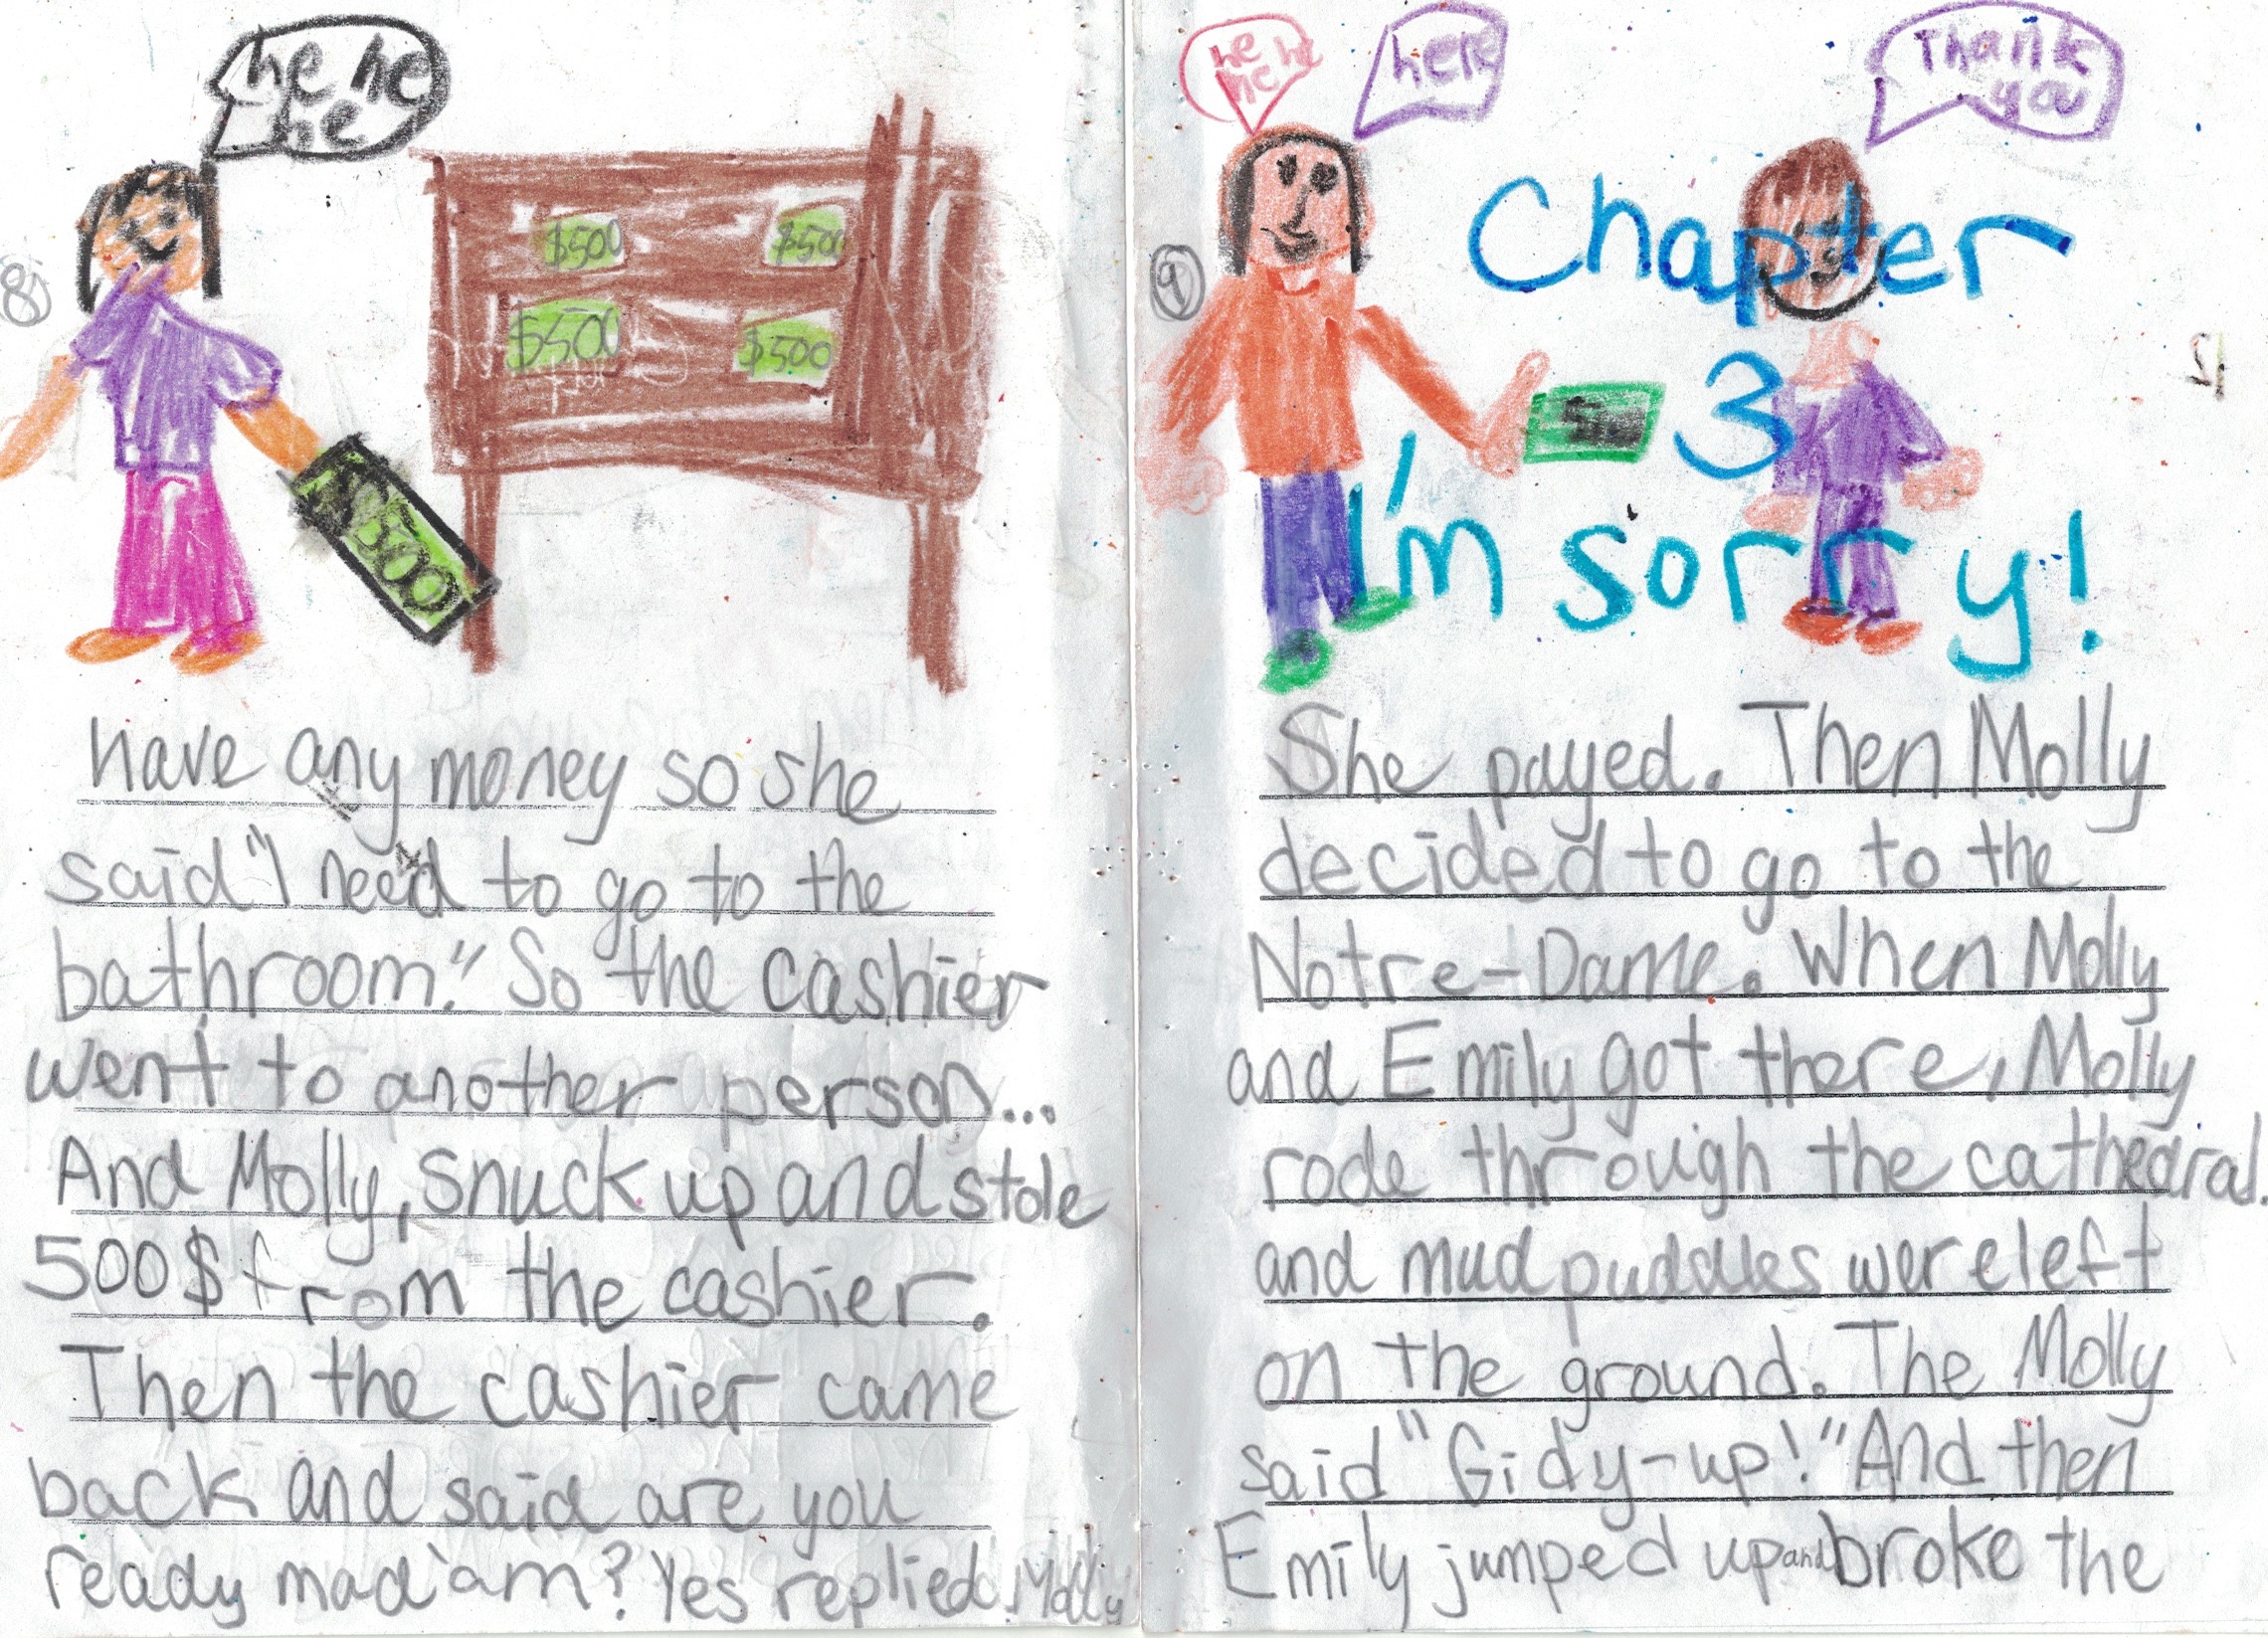 he he
he
$500
$500
$500
$500
$500
8
have any money so she
said "I need to go to the
bathroom." So the cashier
went to another person...
And Molly, snuck up and stole
500$ from the cashier.
Then the cashier came
back and said are you
ready mad'am? Yes replied Molly
he
he he
here
Thank
you
9
Chapter
3
I'm sorry!
She payed. Then Molly
decided to go to the
Notre-Dame. When Molly
and Emily got there, Molly
rode through the cathedral
and mud puddles were left
on the ground. The Molly
said "Gidy-up!" And then
Emily jumped up and broke the